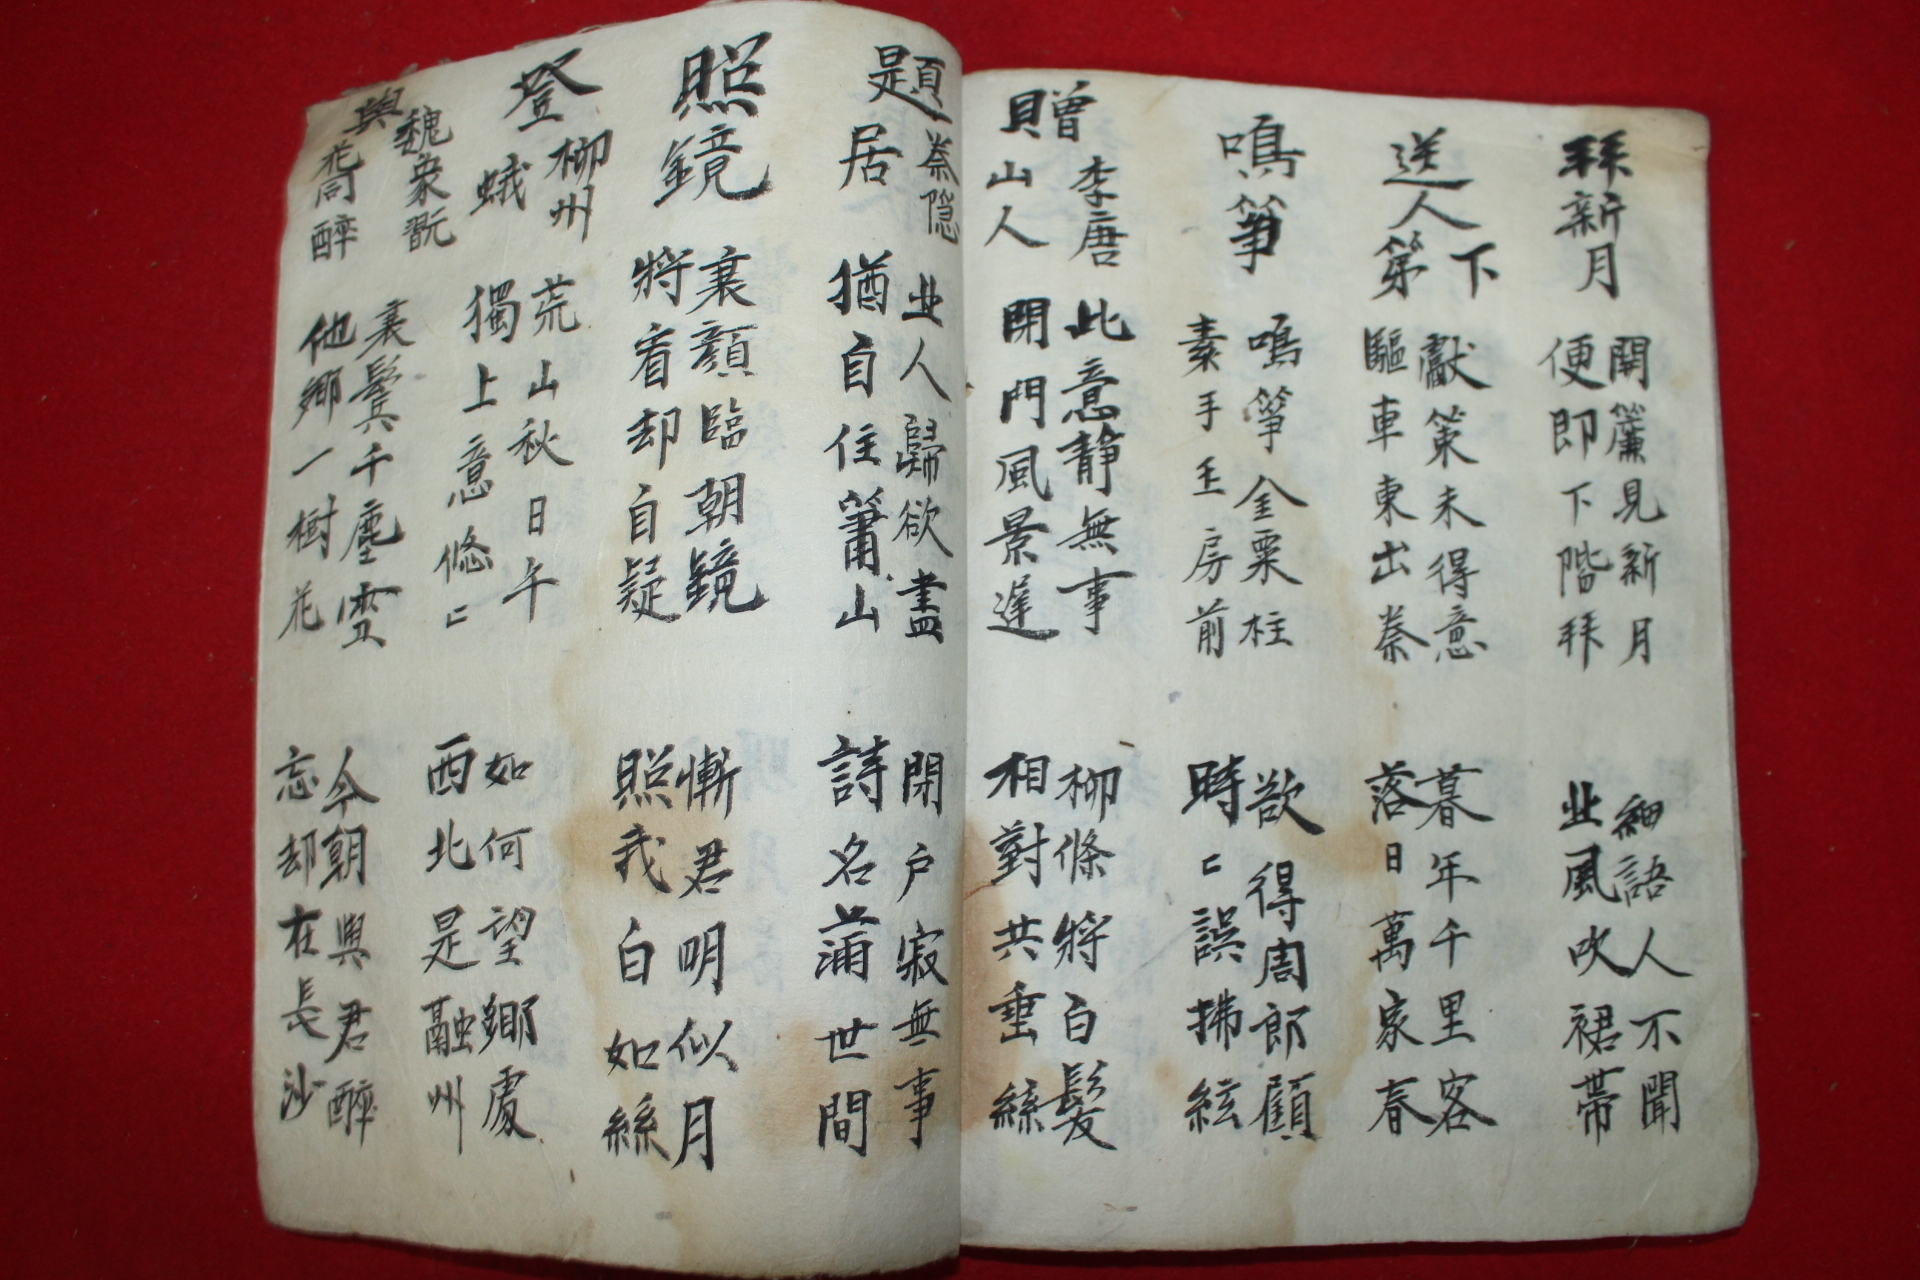 拜新月
開簾見新月
便即下階拜
細語人不聞
北風吹裙帶
送人下第
獻策未得意
驅車東出秦
暮年千里客
落日萬家春
鳴箏
鳴箏金粟柱
素手玉房前
欲得周郎顧
時〻誤拂絃
贈李唐山人
此意靜無事
閉門風景遲
柳條將白髮
相對共垂絲
題秦隱居
北人歸欲盡
猶自住簫山
閉戶寂無事
詩名滿世間
照鏡
衰顔臨朝鏡
將看却自疑
慚君明似月
照我白如絲
登柳州蛾
荒山秋日午
獨上意悠〻
如何望鄕處
西北是融州
與魏象翫花同醉
衰鬢千塵雪
他鄕一樹花
今朝與君醉
忘却在長沙